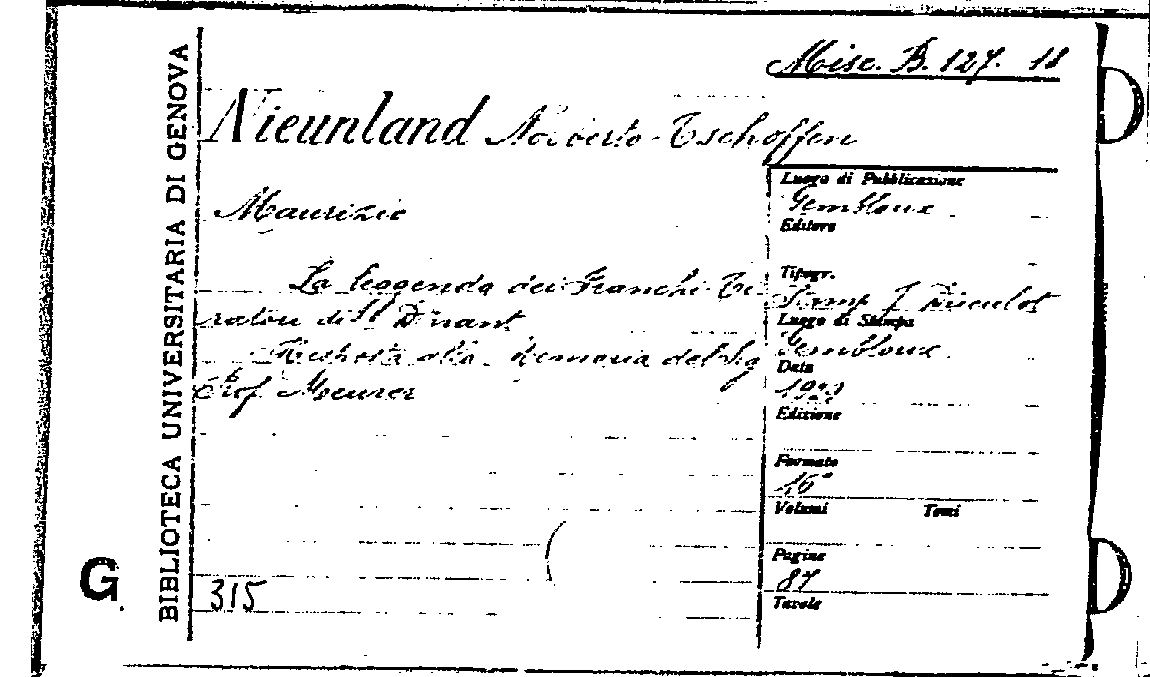 Misc. B. 127. 18
BIBLIOTECA UNIVERSITARIA DI GENOVA
Nieunland Norberto - Tschoffen
Maurizio
La leggenda dei Franchi Ti-
ratori di Dinant
Risposta alla memoria del Sig
Prof Meurer
Luogo di Pubblicazione
Gembloux
Editore
Tipogr.
Stamp J Duculot
Luogo di Stampa
Gembloux
Data
Edizione
Formato
16°
Volumi Tomi
Pagine
87
Tavole
G.
315